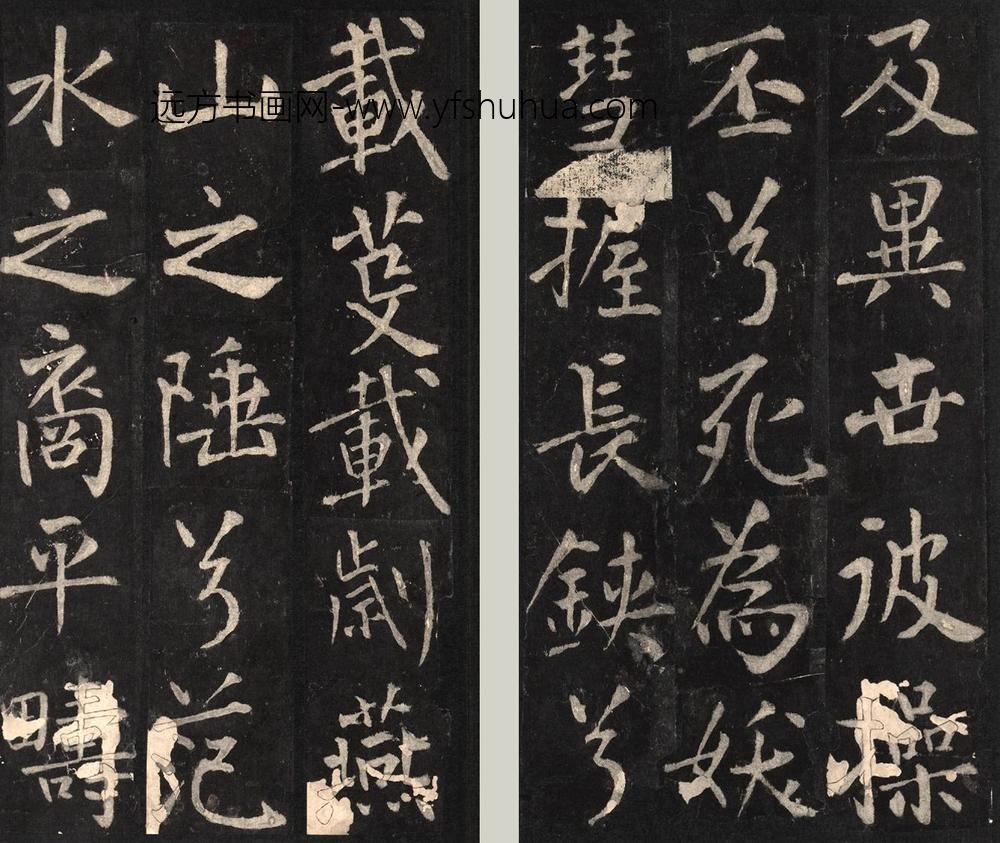 及異世彼操
丕兮死為妖
彗握長鋏兮
載芟載劌燕
山之陲兮范
水之裔平疇
远方书画网-www.yfshuhua.com